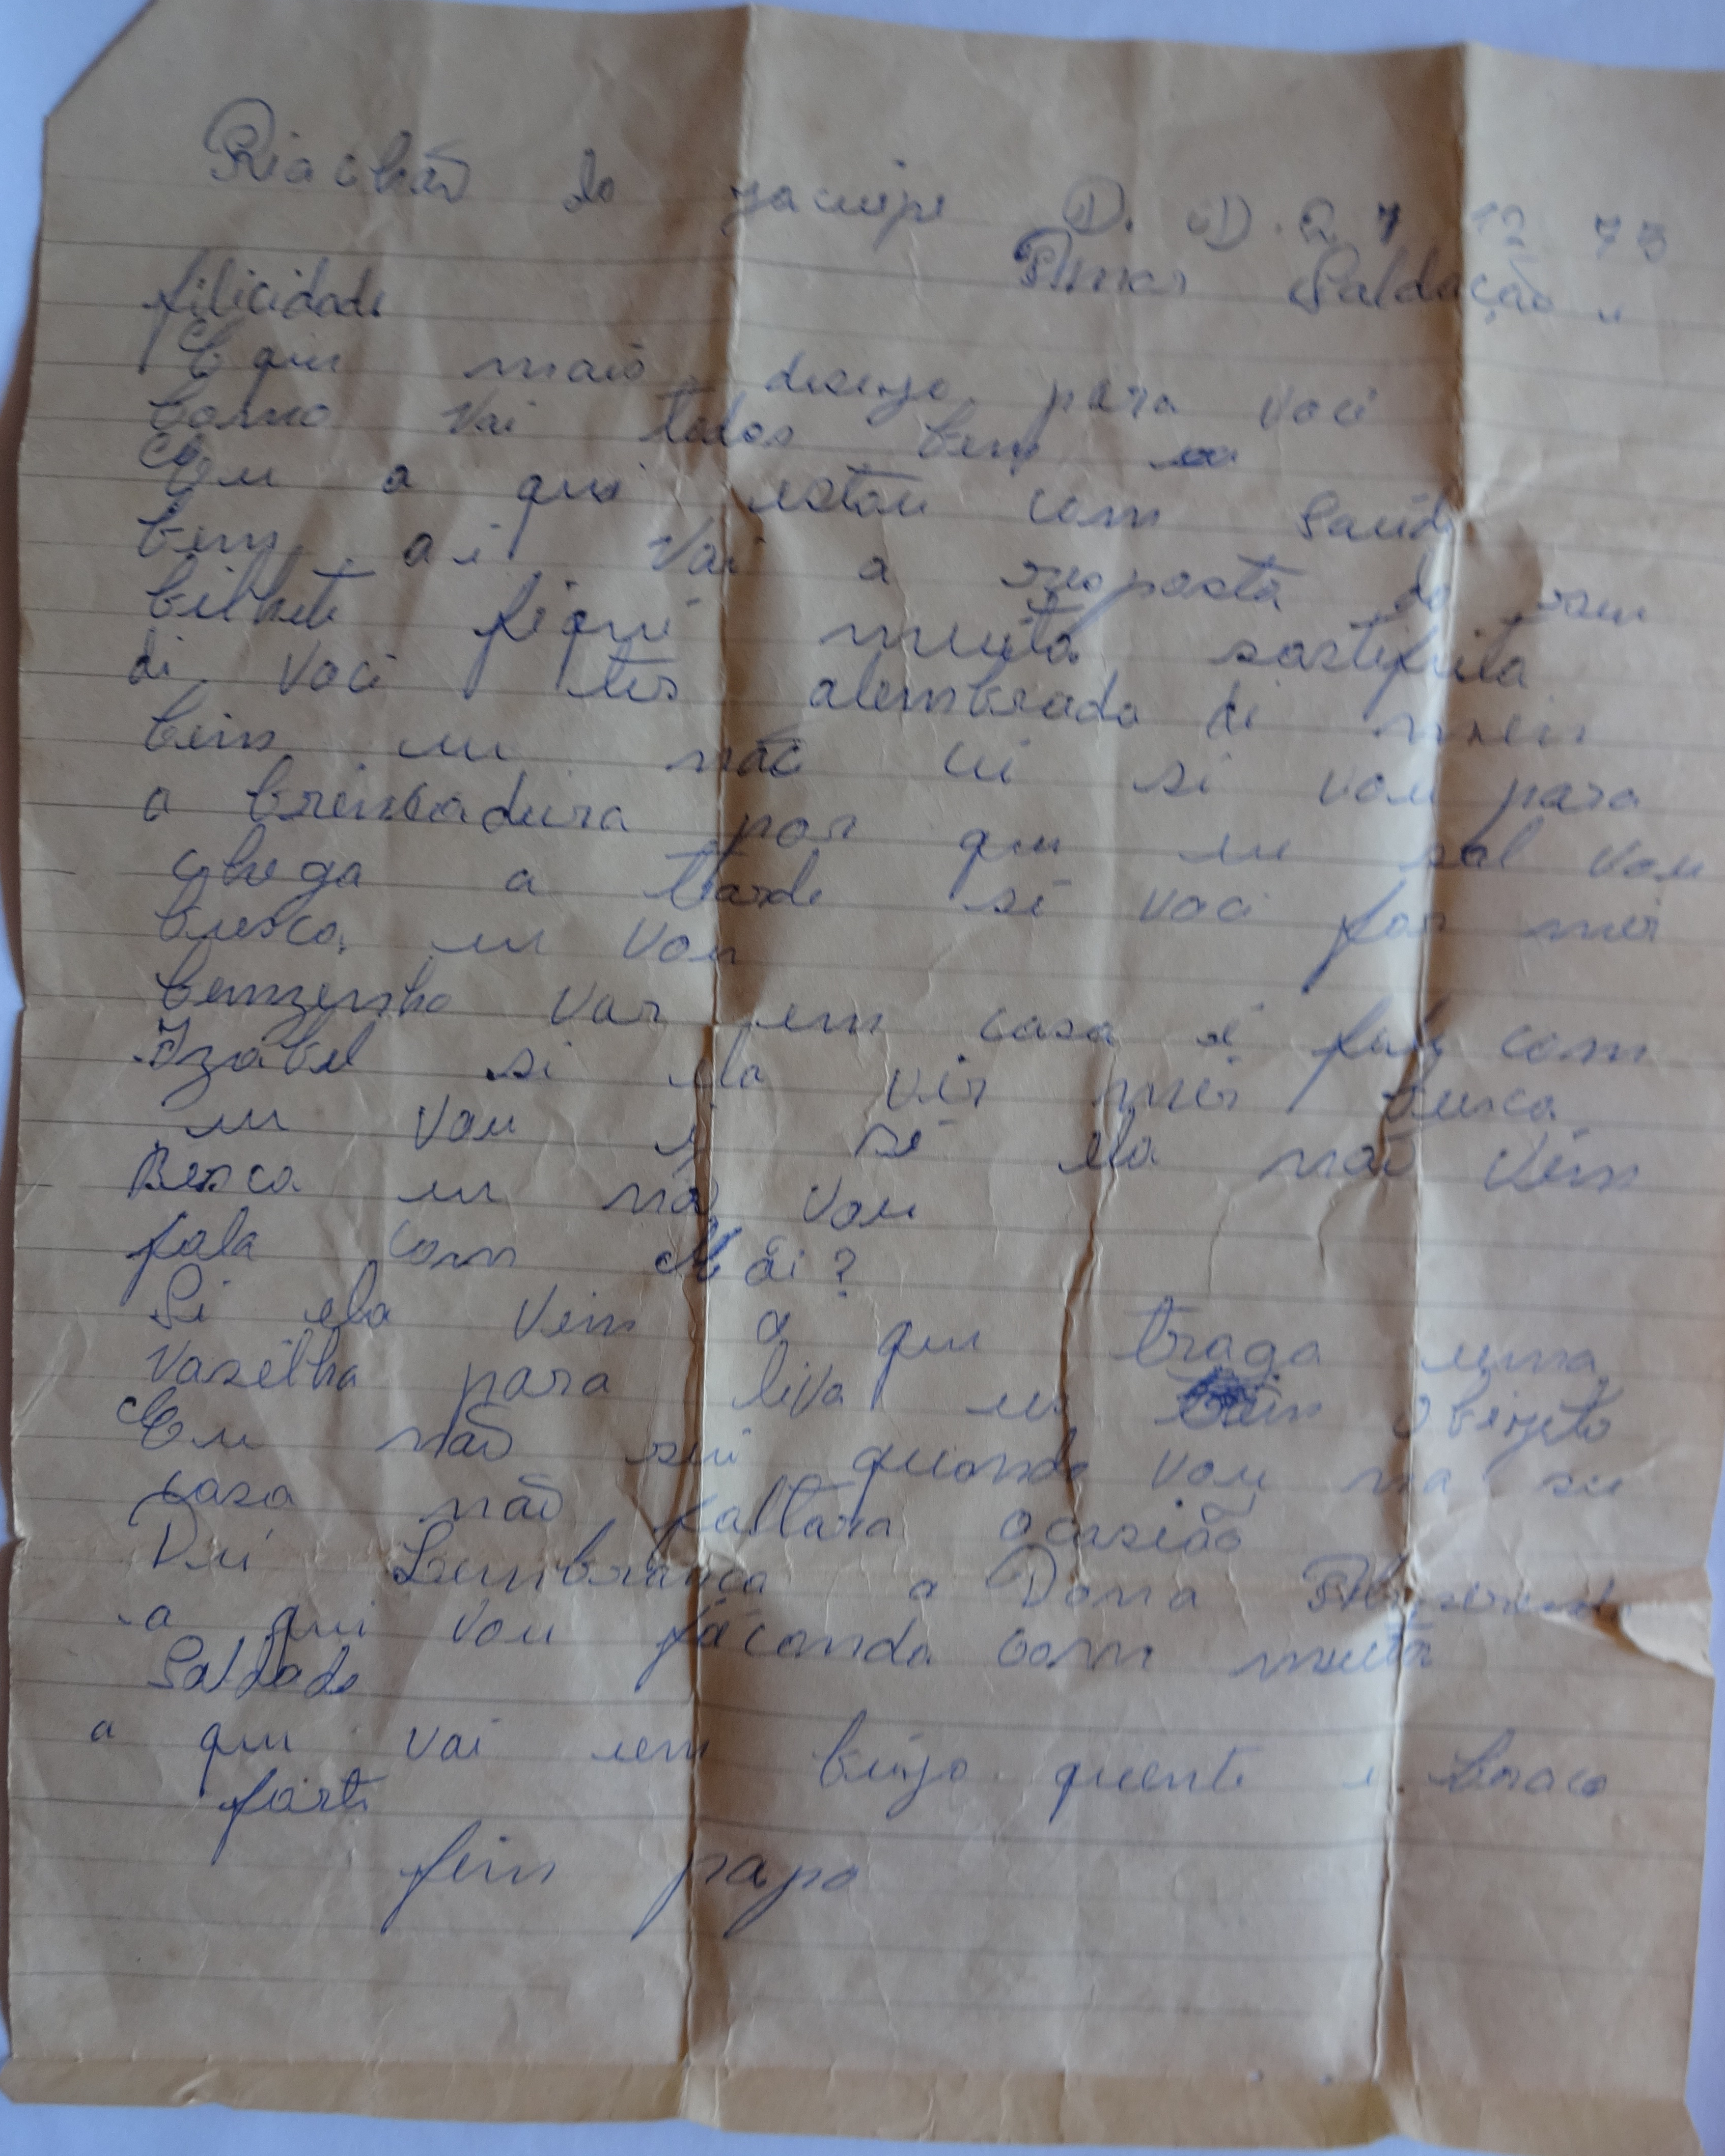 Riachão do jacuipi D. D. 27 12 75
Amor Saldação e
filicidade
E que mais desejo para voci
Como vai todos bem
Eu a qui estou com Saúdi
bem ai vai a resposta do seu
bilheti fiqui muito sastifeita
di voci ter alembrado di mim
beim eu não cei si vou para
a brincadeira por que eu sol vou
chega a tardi si voci for mir
busca eu vou
benzinho var em casa é fala com
Izabel si ela vir mir busca
eu vou i si ela não vim
Busca eu não vou
fala com Mãi?
Si ela vim a qui traga uma
vazilha para liva us objeto
Eu não sei quando vou na su
casa não faltara ocasião
Dei Lembrança a Dona
a qui vou ficando com muita
Saldade
a qui vai um beijo quenti i braco
forti
fim papo